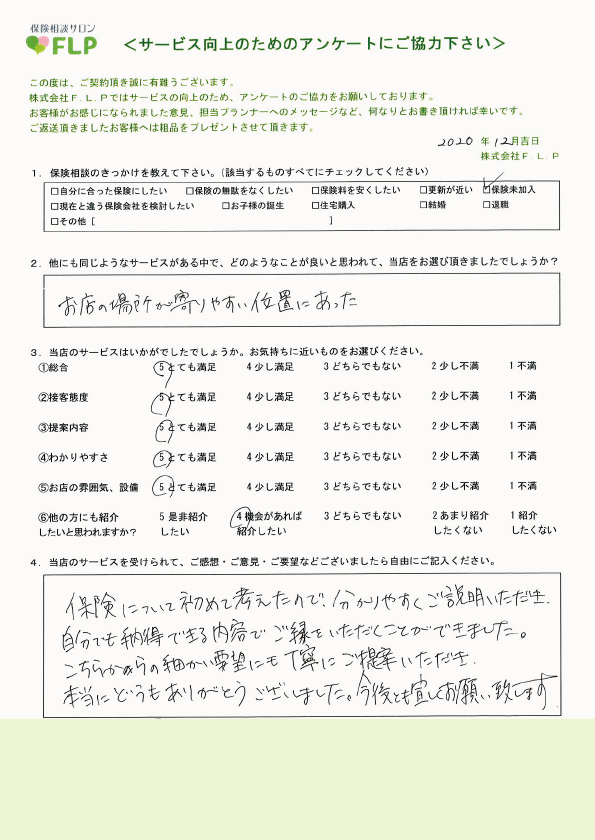 保険相談サロン
FLP
＜サービス向上のためのアンケートにご協力下さい＞
この度は、ご契約頂き誠に有難うございます。
株式会社Ｆ.Ｌ.Ｐではサービスの向上のため、アンケートのご協力をお願いしております。
お客様がお感じになられました意見、担当プランナーへのメッセージなど、何なりとお書き頂ければ幸いです。
ご返送頂きましたお客様へは粗品をプレゼントさせて頂きます。
2020 年 12月吉日
株式会社Ｆ.Ｌ.Ｐ
１．保険相談のきっかけを教えて下さい。（該当するものすべてにチェックしてください）
□自分に合った保険にしたい □保険の無駄をなくしたい □保険料を安くしたい □更新が近い □保険未加入
□現在と違う保険会社を検討したい □お子様の誕生 □住宅購入 □結婚 □退職
□その他［ ］
２．他にも同じようなサービスがある中で、どのようなことが良いと思われて、当店をお選び頂きましたでしょうか？
お店の場所が寄りやすい位置にあった
３．当店のサービスはいかがでしたでしょうか。お気持ちに近いものをお選びください。
①総合 5 とても満足 4 少し満足 3 どちらでもない 2 少し不満 1 不満
②接客態度 5 とても満足 4 少し満足 3 どちらでもない 2 少し不満 1 不満
③提案内容 5 とても満足 4 少し満足 3 どちらでもない 2 少し不満 1 不満
④わかりやすさ 5 とても満足 4 少し満足 3 どちらでもない 2 少し不満 1 不満
⑤お店の雰囲気、設備 5 とても満足 4 少し満足 3 どちらでもない 2 少し不満 1 不満
⑥他の方にも紹介 5 是非紹介 4 機会があれば 3 どちらでもない 2 あまり紹介 1 紹介
したいと思われますか？ したい 紹介したい したくない したくない
４．当店のサービスを受けられて、ご感想・ご意見・ご要望などございましたら自由にご記入ください。
保険について初めて考えたので、分かりやすくご説明いただき、
自分でも納得できる内容でご縁をいただくことができました。
こちらからの細かい要望にも丁寧にご提案いただき、
本当にどうもありがとうございました。今後とも宜しくお願い致します